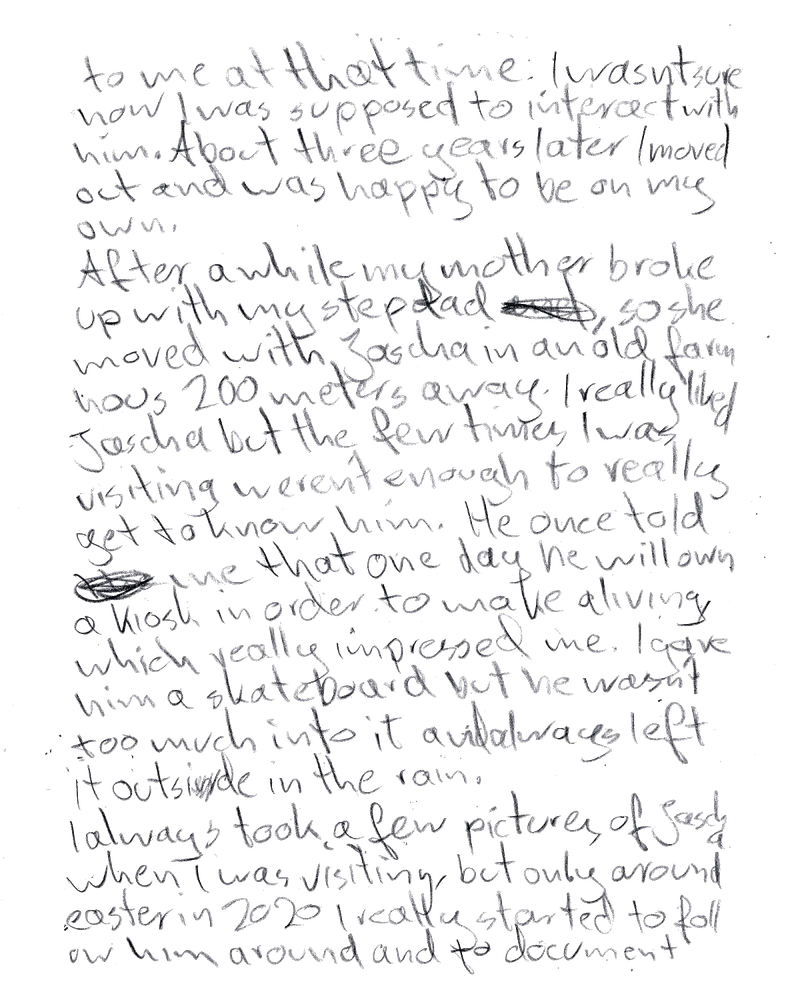 to me at that time. I wasn't sure
how I was supposed to interact with
him. About three years later I moved
out and was happy to be on my
own.
After a while my mother broke
up with my stepdad, so she
moved with Jascha in an old farm
hous 200 meters away. I really liked
Jascha but the few times I was
visiting weren't enough to really
get to know him. He once told
me that one day he will own
a kiosk in order to make a living,
which really impressed me. I gave
him a skateboard but he wasn't
too much into it and always left
it outside in the rain.
I always took a few pictures of Jascha
when I was visiting, but only around
easter in 2020 I really started to foll
ow him around and to document